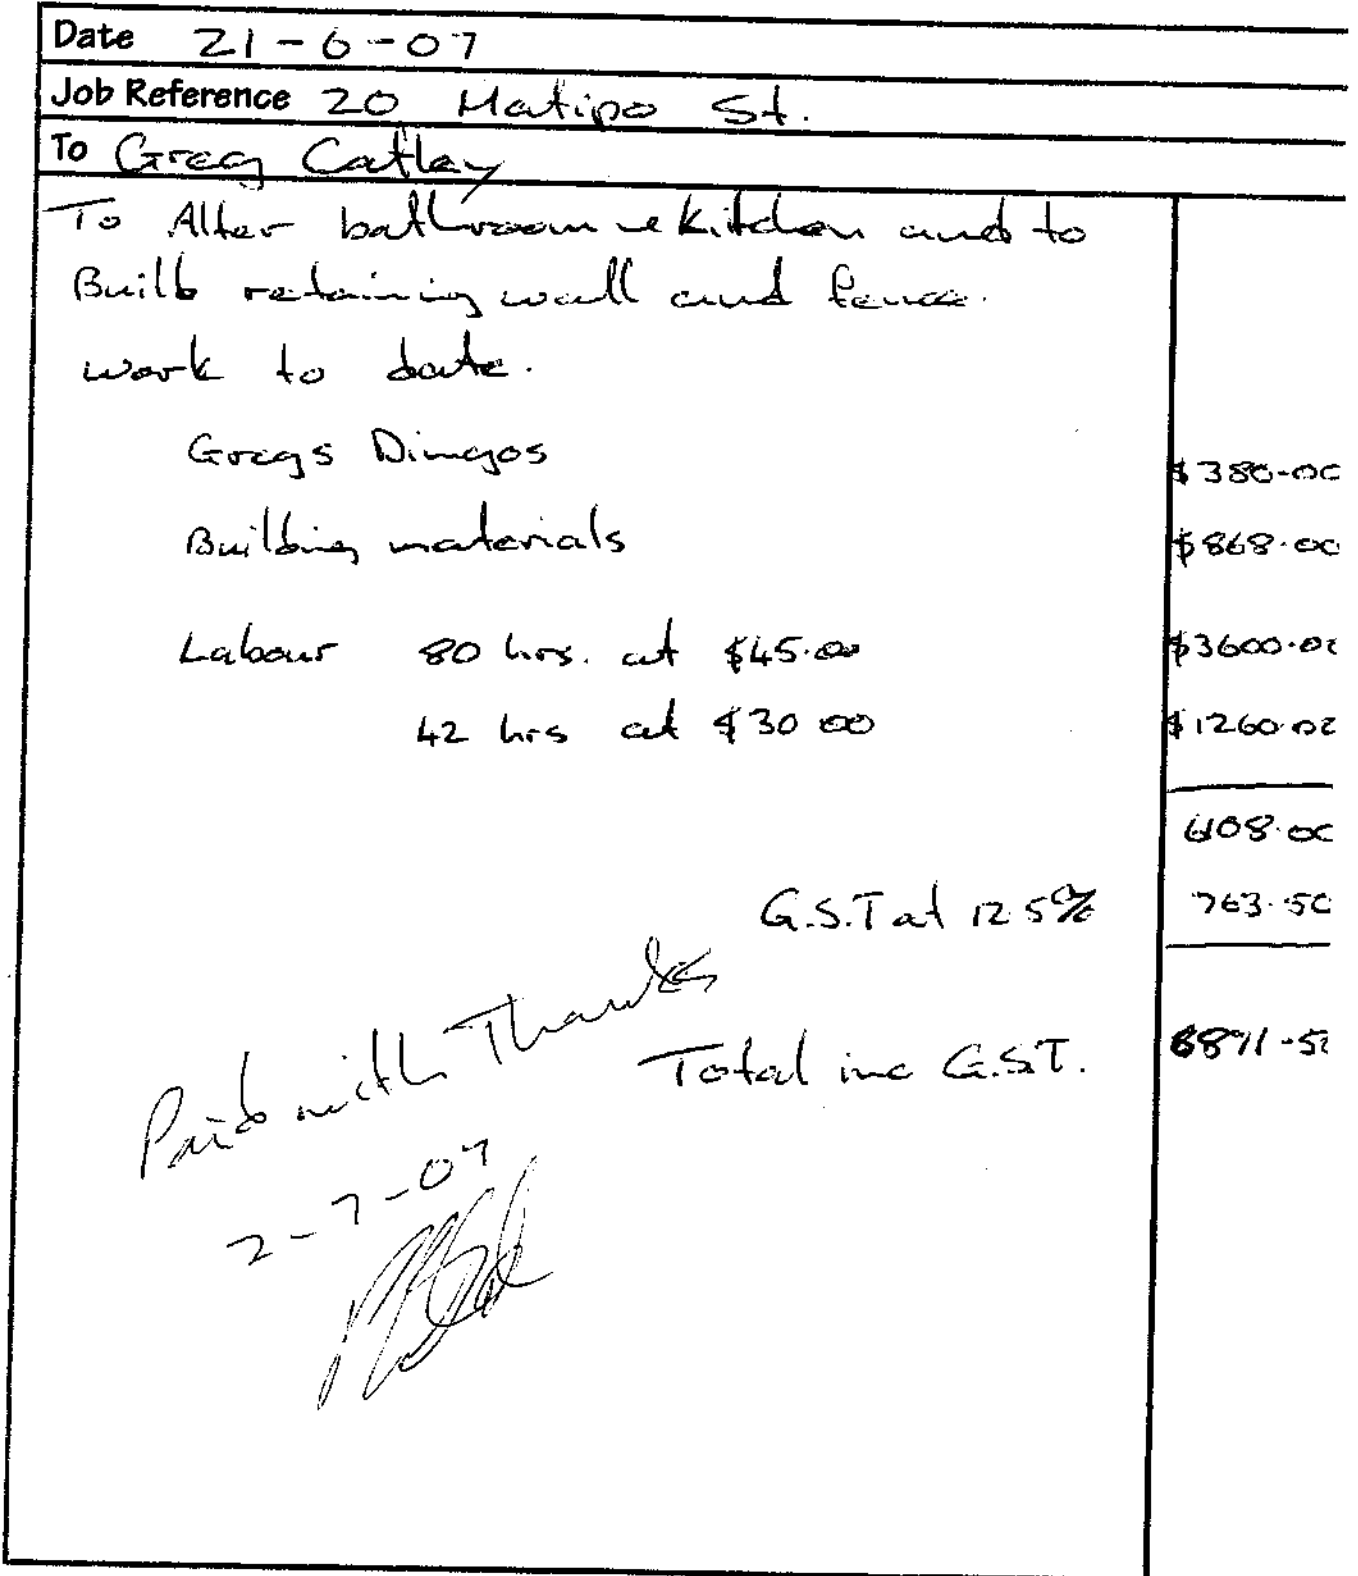 Date 21-6-07
Job Reference 20 Matipo St.
To Greg Catley
To Alter bathroom & Kitchen and to
Build retaining wall and fence.
work to date.
Gregs Dingos $380-00
Building materials $868.00
Labour 80 hrs. at $45.00 $3600.00
42 hrs at $30 00 $1260.00
6108.00
G.S.T at 12.5% 763.50
Total inc G.S.T. 6871-5
Paid with Thanks
2-7-07